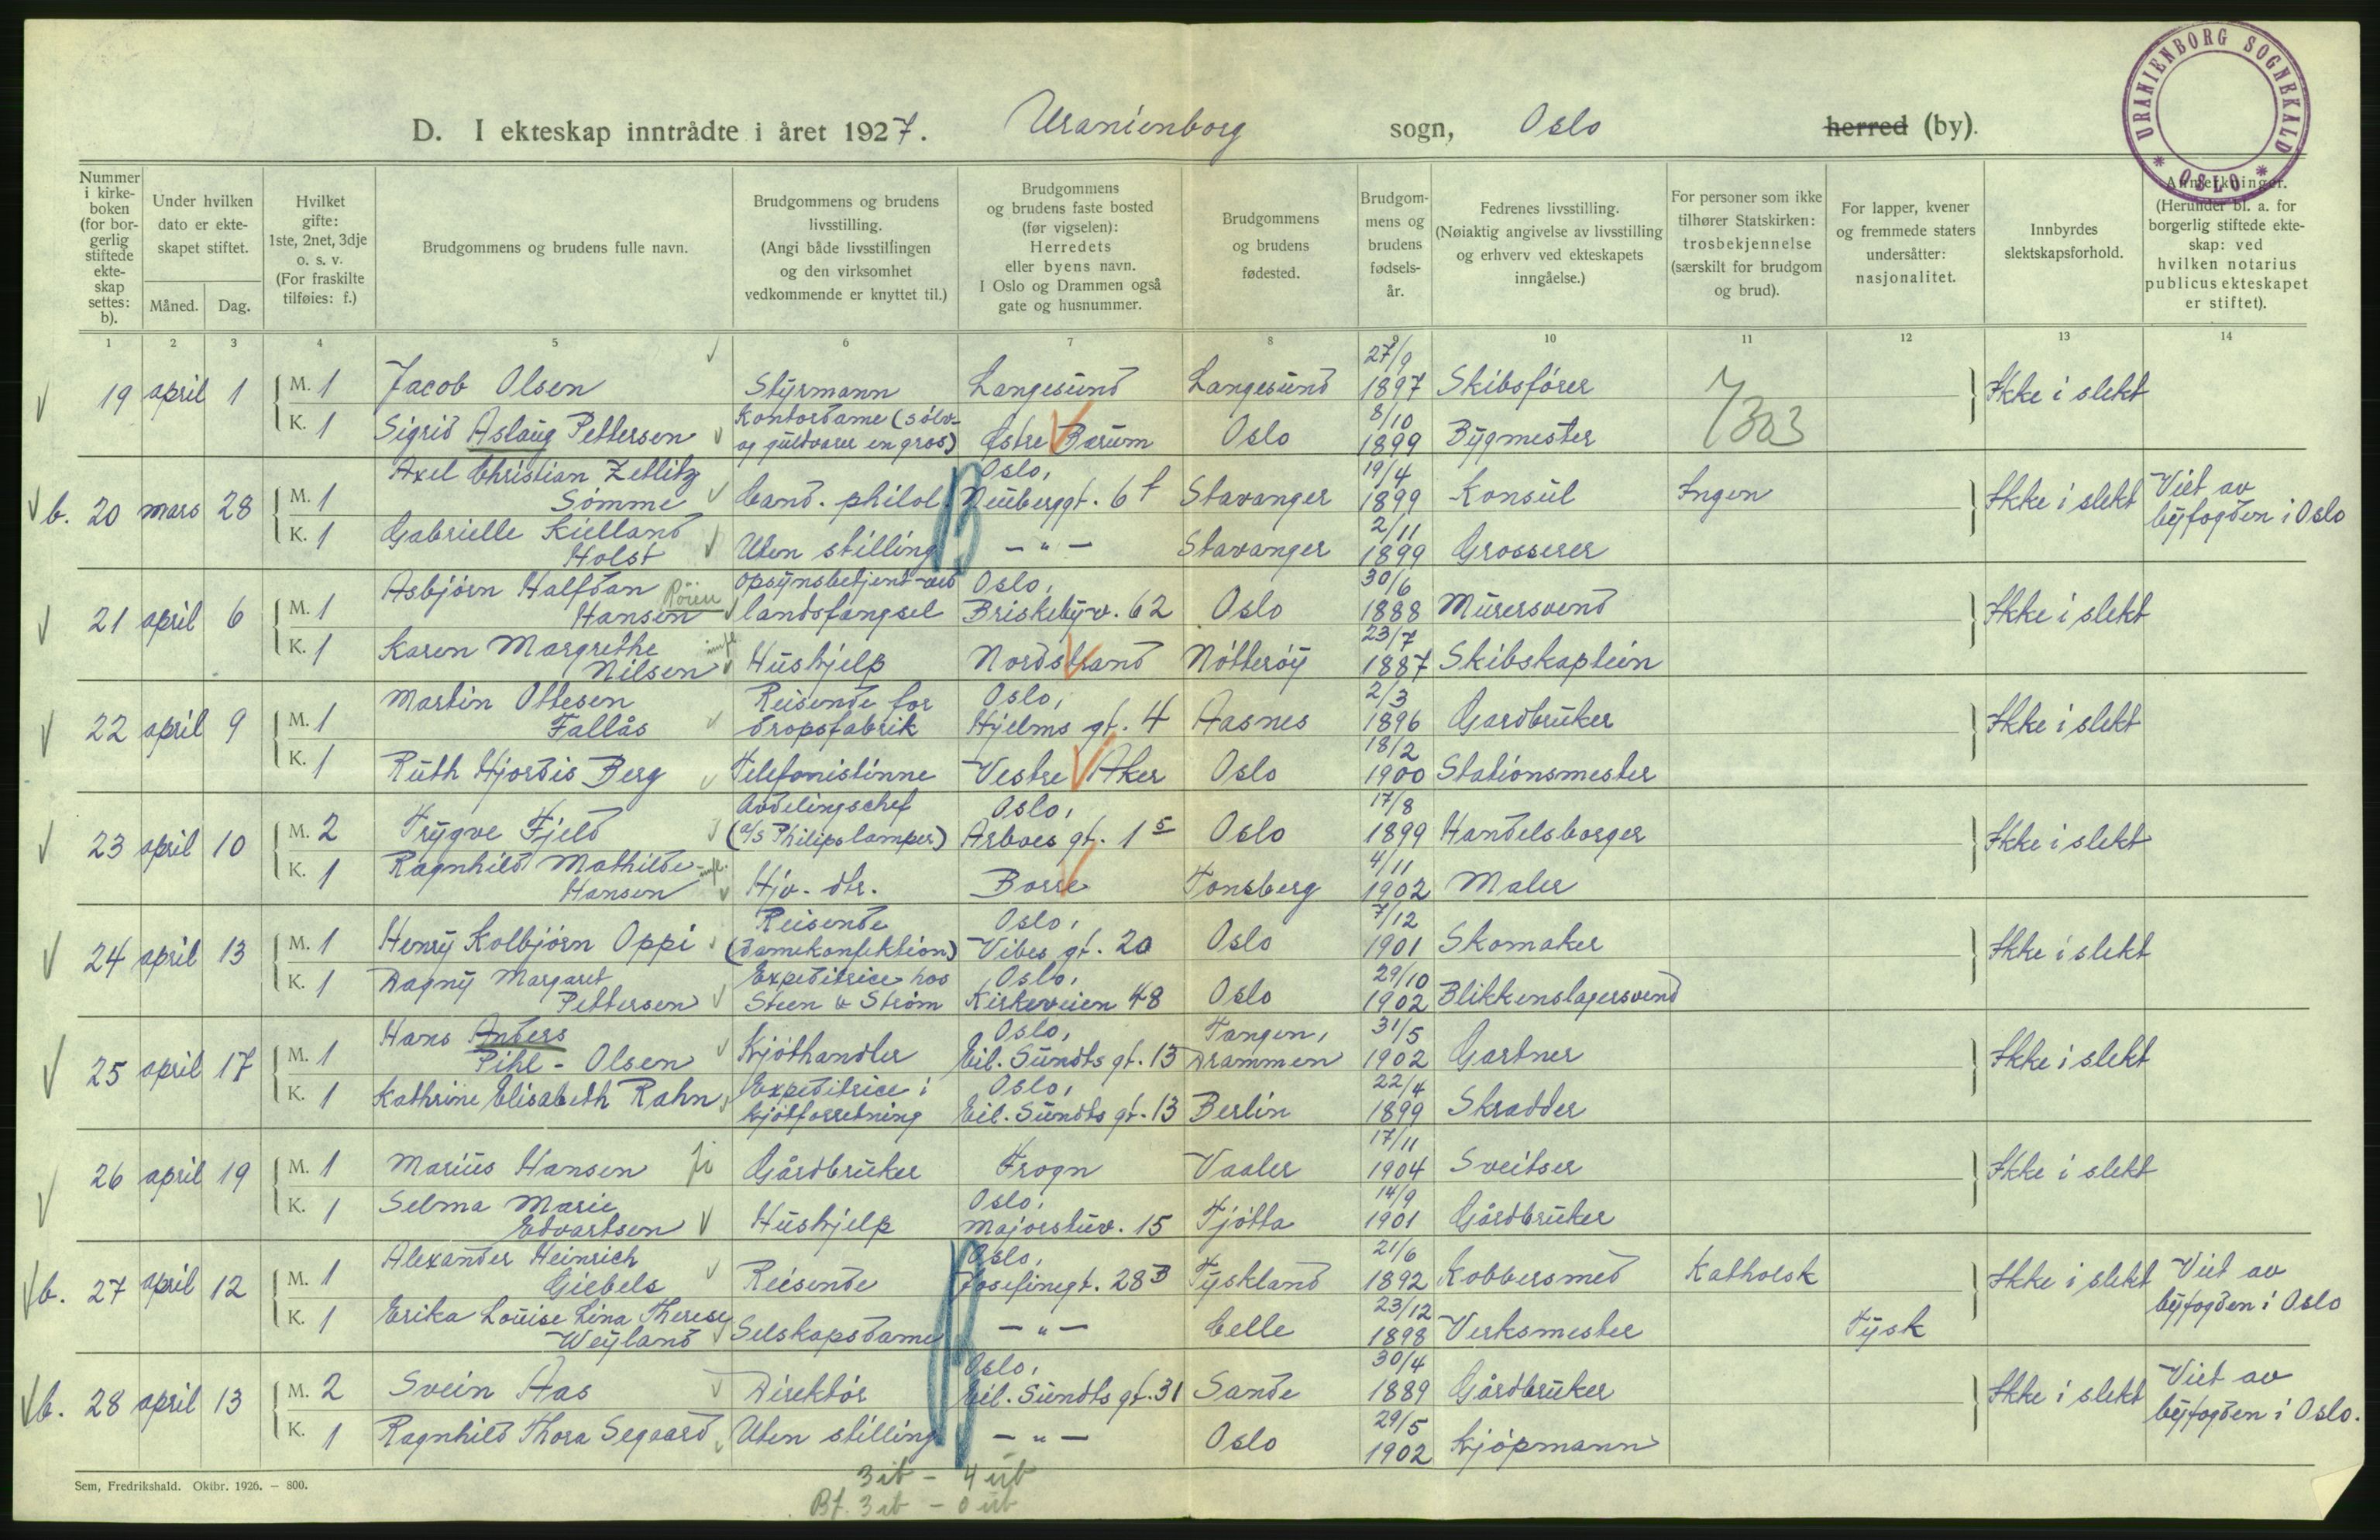 URANIENBORG SOGNEKALD * OSLO *
D. I ekteskap inntrådte i året 1927. Uranienborg sogn, Oslo herred (by).
Nummer i kirke-boken (for bor-gerlig stiftede ekte-skap settes: b).
Under hvilken dato er ekte-skapet stiftet.
Måned. Dag.
Hvilket gifte: 1ste, 2net, 3dje o. s. v. (For fraskilte tilføies: f.)
Brudgommens og brudens fulle navn.
Brudgommens og brudens livsstilling. (Angi både livsstillingen og den virksomhet vedkommende er knyttet til.)
Brudgommens og brudens faste bosted (før vigselen): Herredets eller byens navn. I Oslo og Drammen også gate og husnummer.
Brudgommens og brudens fødested.
Brudgom-mens og brudens fødsels-år.
Fedrenes livsstilling. (Nøiaktig angivelse av livsstilling og erhverv ved ekteskapets inngåelse.)
For personer som ikke tilhører Statskirken: trosbekjennelse (særskilt for brudgom og brud).
For lapper, kvener og fremmede staters undersåtter: nasjonalitet.
Innbyrdes slektskapsforhold.
Anmerkninger. (Herunder bl. a. for borgerlig stiftede ekte-skap: ved hvilken notarius publicus ekteskapet er stiftet).
1 2 3 4 5 6 7 8 9 10 11 12 13 14
19 april 1 M. 1 Jacob Olsen Styrmann Langesund Langesund 27/9 1897 Skibsfører Ikke i slekt
K. 1 Sigrid Aslaug Pettersen Kontordame (sølv- og guldvarer en gros) Østre Bærum Oslo 8/10 1899 Bygmester 303
b. 20 mars 28 M. 1 Axel Christian Zetlitz Sømme Cand. philol. Oslo, Neuberggt. 6 f Stavanger 19/4 1899 Konsul Ingen Ikke i slekt Viet av byfogden i Oslo
K. 1 Gabrielle Kielland Holst Uten stilling — " — Stavanger 2/11 1899 Grosserer
21 april 6 M. 1 Asbjørn Halfdan Hansen Röien Opsynsbetjent ved landsfængsel Oslo, Briskebyv. 62 Oslo 30/6 1888 Murersvend Ikke i slekt
K. 1 Karen Margrethe Nilsen Hushjelp Nordstrand Nøtterøy 23/7 1887 Skibskaptein
22 april 9 M. 1 Martin Ottesen Fallås Reisende for dropsfabrik Oslo, Hjelms gt. 4 Aasnes 2/3 1896 Gardbruker Ikke i slekt
K. 1 Ruth Hjordis Berg Telefonistinne Vestre Aker Oslo 18/2 1900 Stationsmester
23 april 10 M. 2 Trygve Fjeld Avdelingschef (a/s Philipslamper) Oslo, Arboes gt. 1 5 Oslo 17/8 1899 Handelsborger Ikke i slekt
K. 1 Ragnhild Mathilde Hansen Hjv. dtr. Borre Tønsberg 4/11 1902 Maler
24 april 13 M. 1 Henry Kolbjørn Oppi Reisende (damekonfektion) Oslo, Vibes gt. 20 Oslo 7/12 1901 Skomaker Ikke i slekt
K. 1 Dagny Margaret Pettersen Expeditrice hos Steen & Strøm Oslo, Kirkeveien 48 Oslo 29/10 1902 Blikkenslagersvend
25 april 17 M. 1 Hans Anders Pihl - Olsen Kjøthandler Oslo, Eil. Sundts gt. 13 Tangen, Drammen 31/5 1902 Gartner Ikke i slekt
K. 1 Kathrine Elisabeth Rahn Expeditrice i kjøtforretning Oslo, Eil. Sundts gt. 13 Berlin 22/4 1899 Skrædder
26 april 19 M. 1 Marius Hansen Gårdbruker Frogn Vaaler 17/11 1904 Sveitser Ikke i slekt
K. 1 Selma Marie Edvartsen Hushjelp Oslo, Majorstuv. 15 Tjøtta 14/9 1901 Gårdbruker
b. 27 april 12 M. 1 Alexander Heinrich Giebels Reisende Oslo, Josefinegt. 28 B Tyskland 21/6 1892 Kobbersmed Katholsk Ikke i slekt Viet av byfogden i Oslo
K. 1 Erika Louise Lina Therese Weyland Selskapsdame — " — Celle 23/12 1898 Verksmester Tysk
b. 28 april 13 M. 2 Svein Aas Direktør Oslo, Eil. Sundts gt. 31 Sande 30/4 1889 Gårdbruker Ikke i slekt Viet av byfogden i Oslo.
K. 1 Ragnhild Thora Segaard Uten stilling — " — Oslo 29/5 1902 Kjøpmann
Sem, Fredrikshald. Oktbr. 1926. — 800.
3 ib - 4 ub
Bf. 3 ib - 0 ub